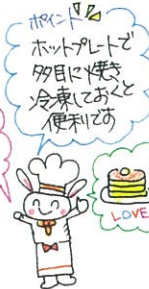 ポイント
ホットプレートで
多目に焼き
冷凍しておくと
便利です
LOVE